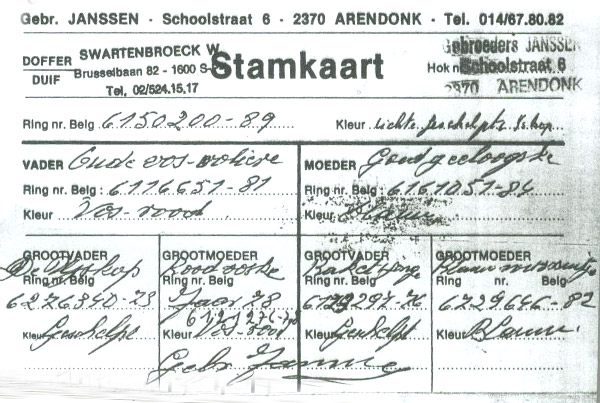 Gebr. JANSSEN - Schoolstraat 6 - 2370 ARENDONK - Tel. 014/67.80.82
DOFFER
DUIF
SWARTENBROECK W.
Brusselbaan 82 - 1600 S-
Tel. 02/524.15.17
Stamkaart
Hok n
Gebroeders JANSSEN
Schoolstraat 6
2370 ARENDONK
Ring nr. Belg 6150200-89 Kleur lichte
VADER Oude vos-
Ring nr. Belg : 6116651-81
Kleur Vos-rood
MOEDER Goed geeloogske
Ring nr. Belg : 6161051-84
Kleur Blauw
GROOTVADER
De Voskop
Ring nr. Belg
6276340-73
Kleur Geschelpt
GROOTMOEDER
Rood voske
Ring nr. Belg
Jaar 78
Kleur Vos-rood
GROOTVADER
Ring nr. Belg
Kleur Geschelpt
GROOTMOEDER
Ring nr. Belg
6729646-82
Kleur Blauw
Gebr. Janssen